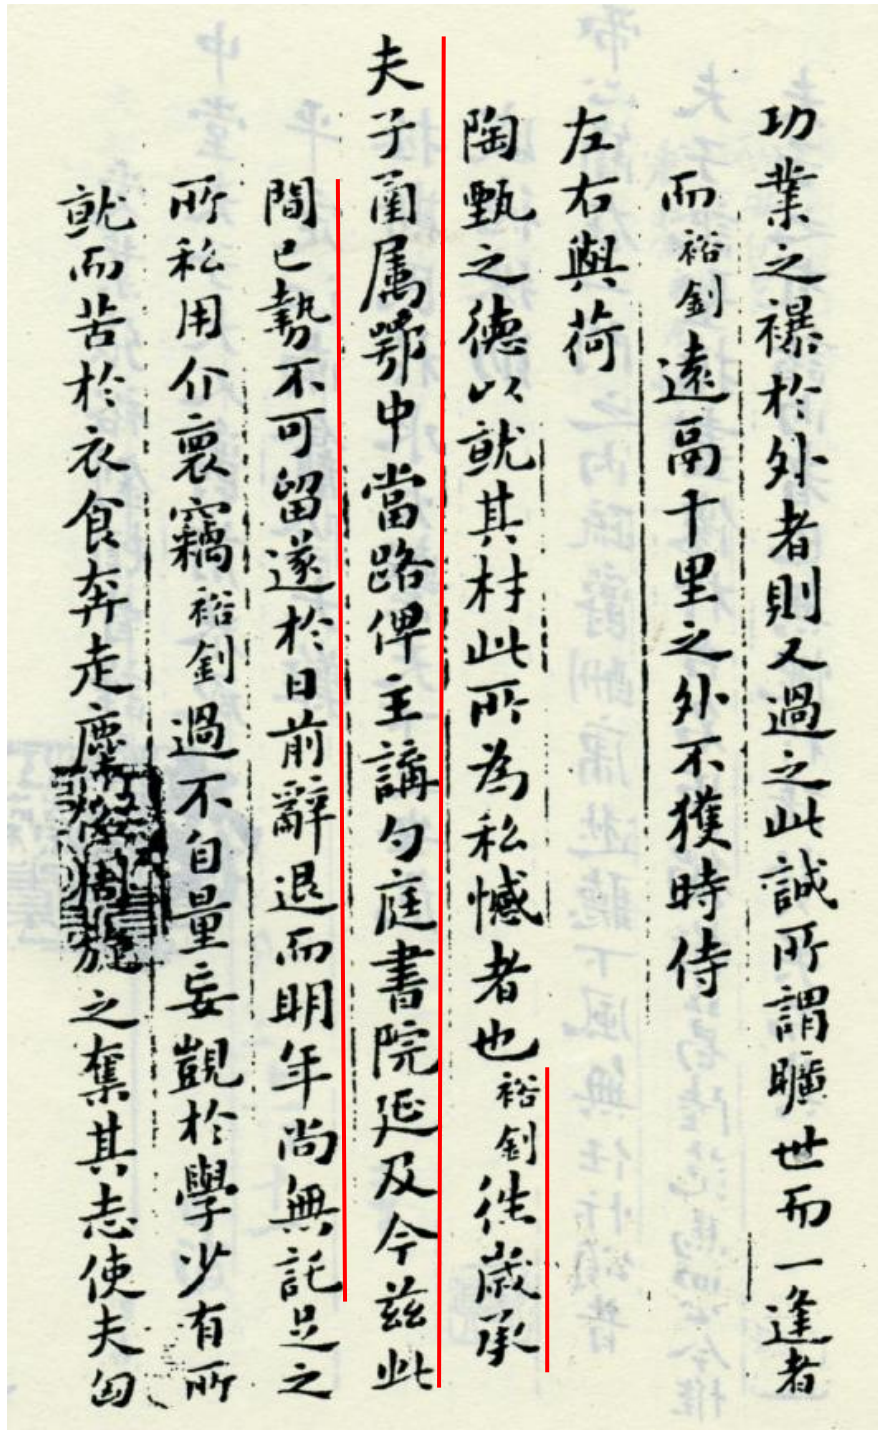 功業之襮於外者則又過之此誠所謂曠世而一逢者
而裕釗遠鬲千里之外不獲時侍
左右與荷
陶甄之德以就其材此所為私憾者也裕釗徃歲承
夫子函属鄂中當路俾主講勺庭書院延及今茲此
間已勢不可留遂於日前辭退而明年尚無託足之
所私用介褱竊裕釗過不自量妄覬於學少有所
就而苦於衣食奔走塵俗周旋之奪其志使夫匈